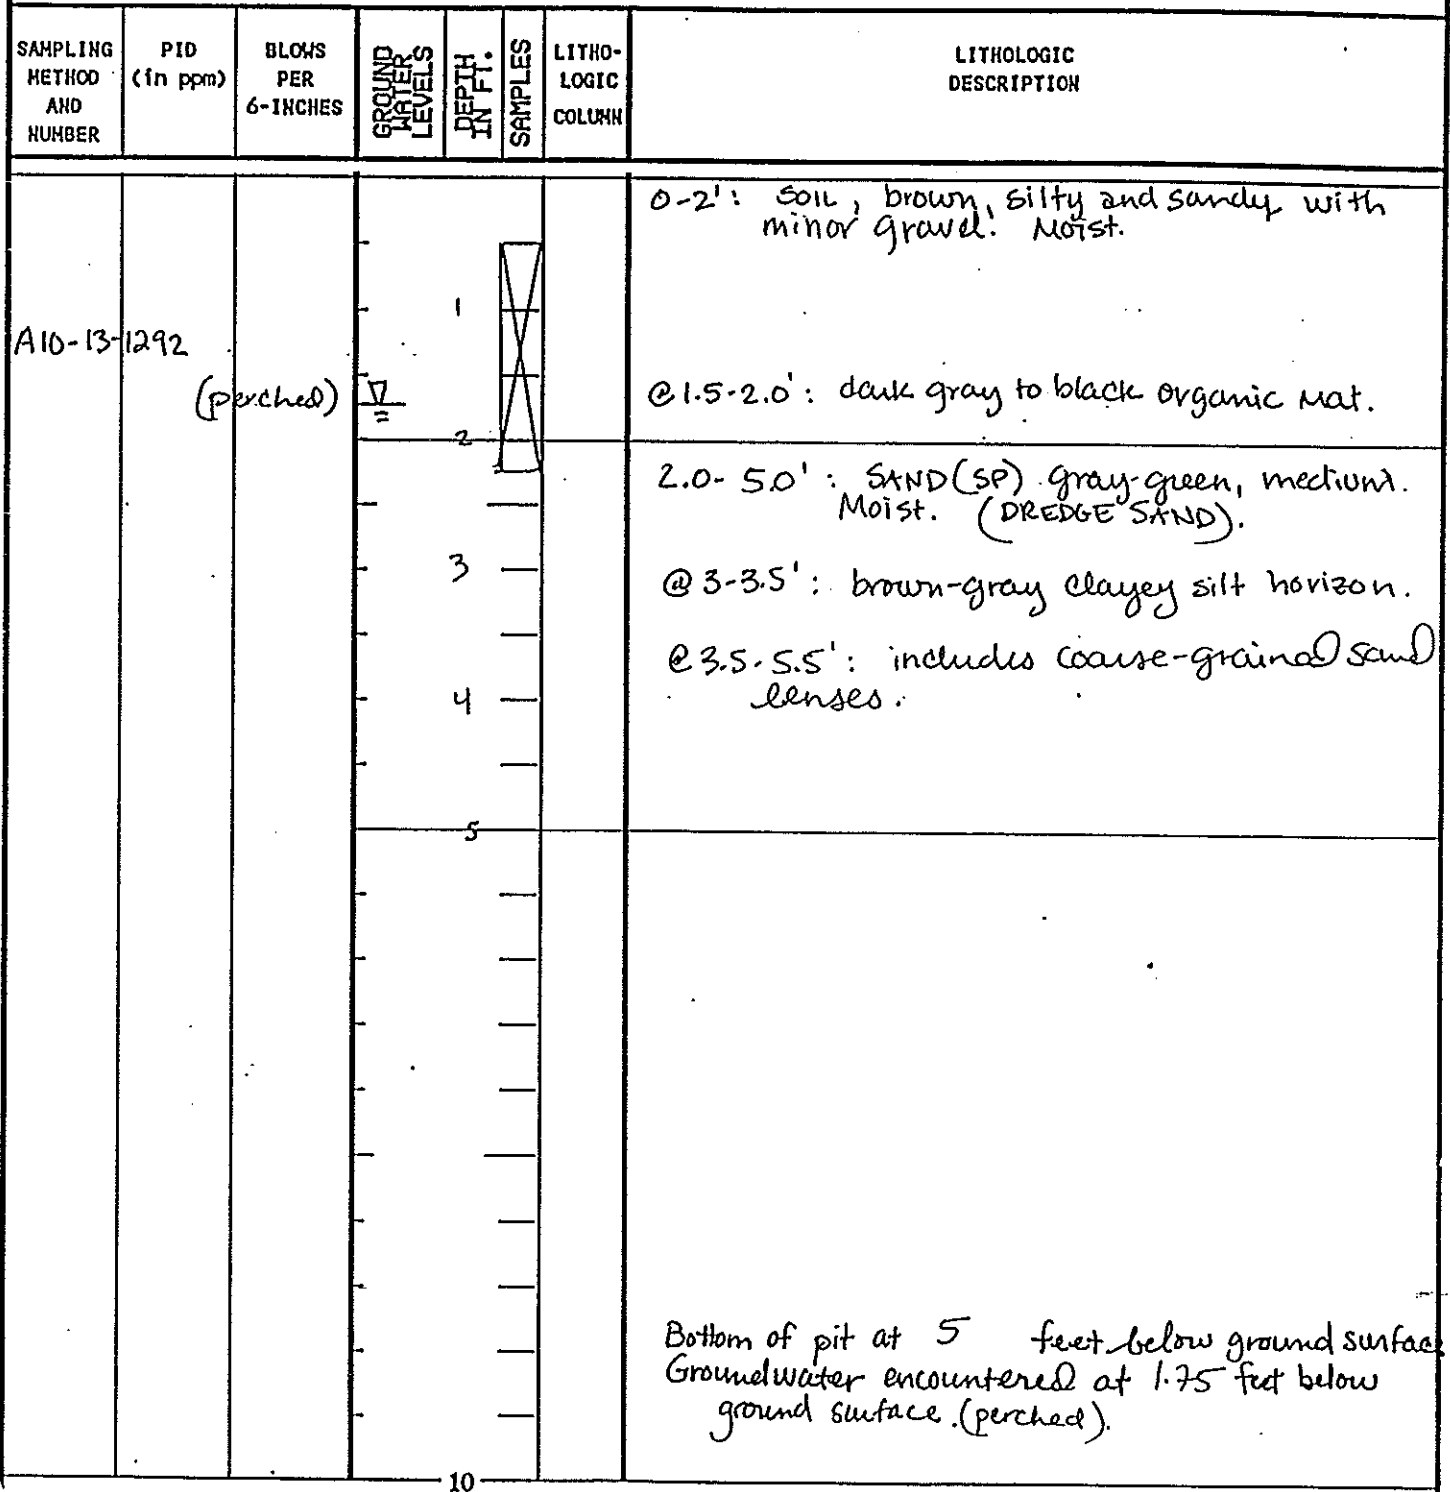 SAMPLING METHOD AND NUMBER
PID (in ppm)
BLOWS PER 6-INCHES
GROUND WATER LEVELS
DEPTH IN FT.
SAMPLES
LITHO-LOGIC COLUMN
LITHOLOGIC DESCRIPTION
0-2': SOIL, brown, silty and sandy with
minor gravel. Moist.
1
A10-13-1292
(perched)
@1.5-2.0': dark gray to black organic mat.
2
2.0-5.0': SAND(SP) gray-green, medium.
Moist. (DREDGE SAND).
3
@3-3.5': brown-gray clayey silt horizon.
@3.5-5.5': includes coarse-grained sand
lenses.
4
5
Bottom of pit at 5 feet below ground surface
Groundwater encountered at 1.75 feet below
ground surface.(perched).
10